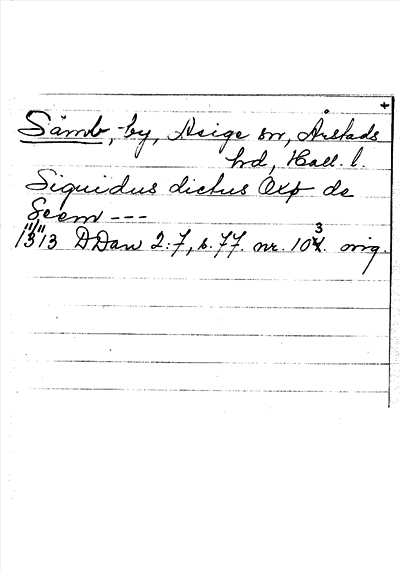 +
Sämb, -by, Asige sn, Årstads
hd, Hall. l.
Siquidus dictus Oxp de
Seem ---
11/11
1313 DDan 2:7, s. 77. nr. 103. orig.